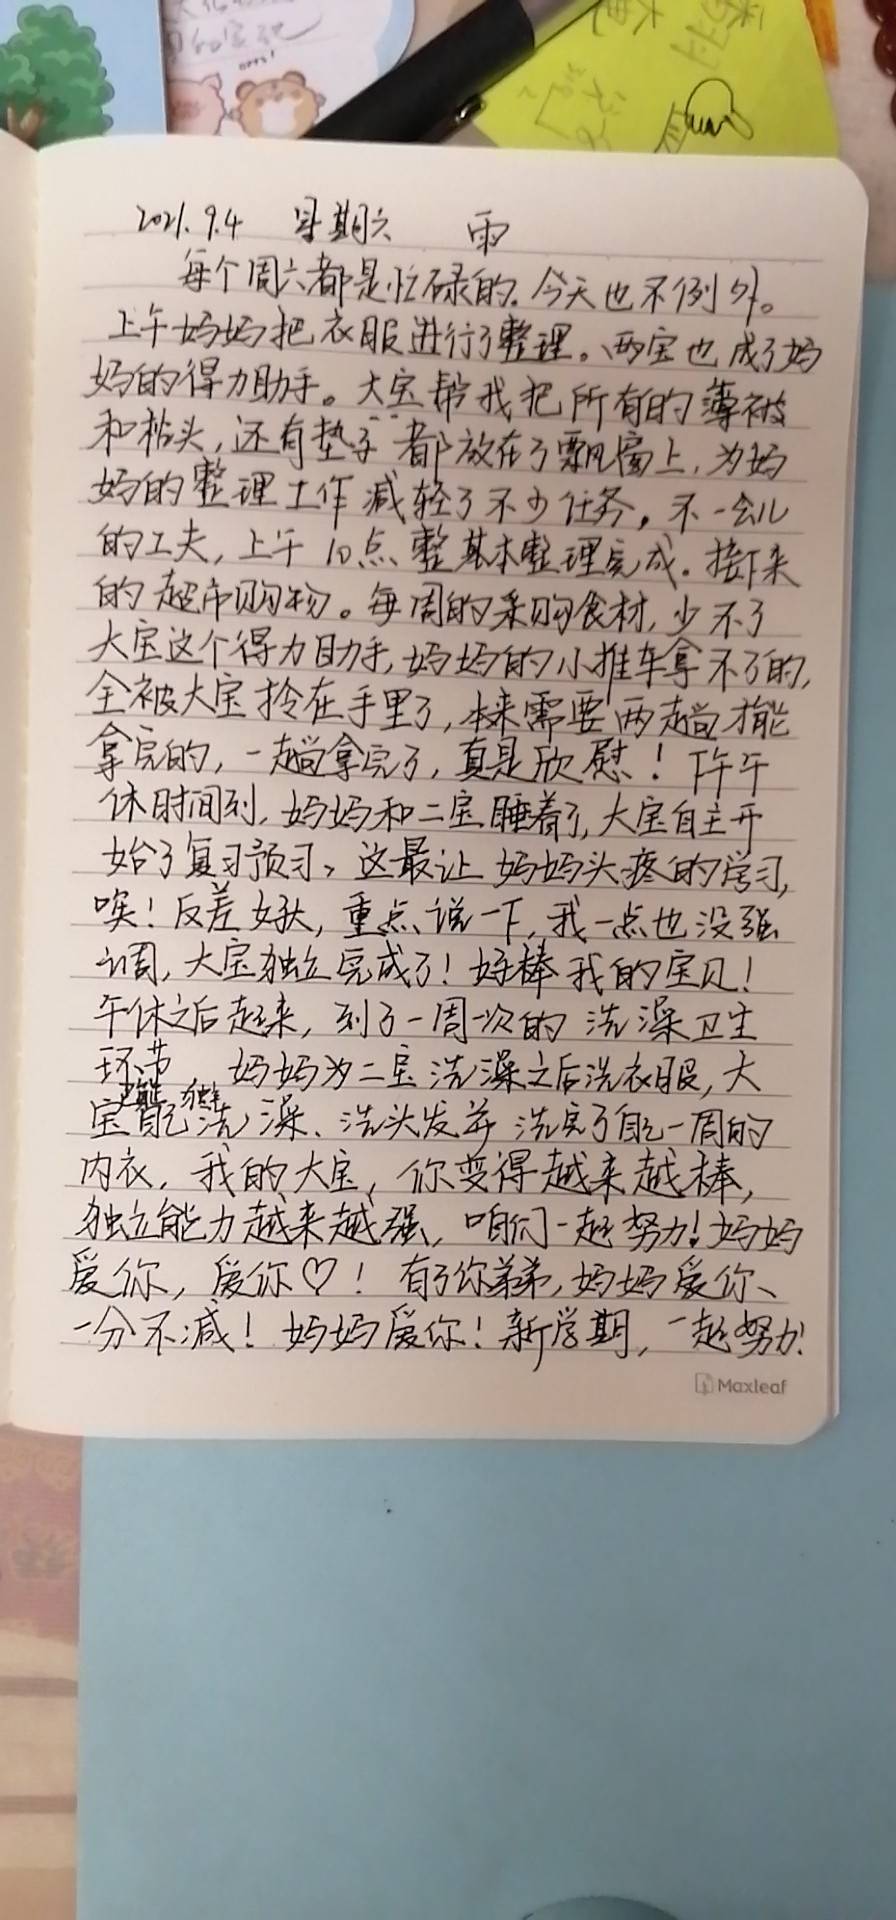 2021.9.4 星期六 雨
每个周六都是忙碌的。今天也不例外。
上午妈妈把衣服进行了整理。两宝也成了妈
妈的得力助手。大宝帮我把所有的薄被
和枕头,还有垫子都放在了飘窗上,为妈
妈的整理工作减轻了不少任务。不一会儿
的工夫,上午10点整基本整理完成。接下来
的超市购物。每周的采购食材,少不了
大宝这个得力助手,妈妈的小推车拿不了的,
全被大宝拎在手里了,本来需要两趟才能
拿完的,一趟拿完了,真是欣慰!下午午
休时间到,妈妈和二宝睡着了,大宝自主开
始了复习预习,这最让妈妈头疼的学习,
唉!反差好大,重点说一下,我一点也没强
调,大宝独立完成了!好棒我的宝贝!
午休之后起来,到了一周一次的洗澡卫生
环节,妈妈为二宝洗澡之后洗衣服,大
宝自己洗澡、洗头发并洗完了自己一周的
内衣,我的大宝,你变得越来越棒,
独立能力越来越强,咱们一起努力!妈妈
爱你,爱你♡!有了你弟弟,妈妈爱你、
一分不减!妈妈爱你!新学期,一起努力!
Maxleaf